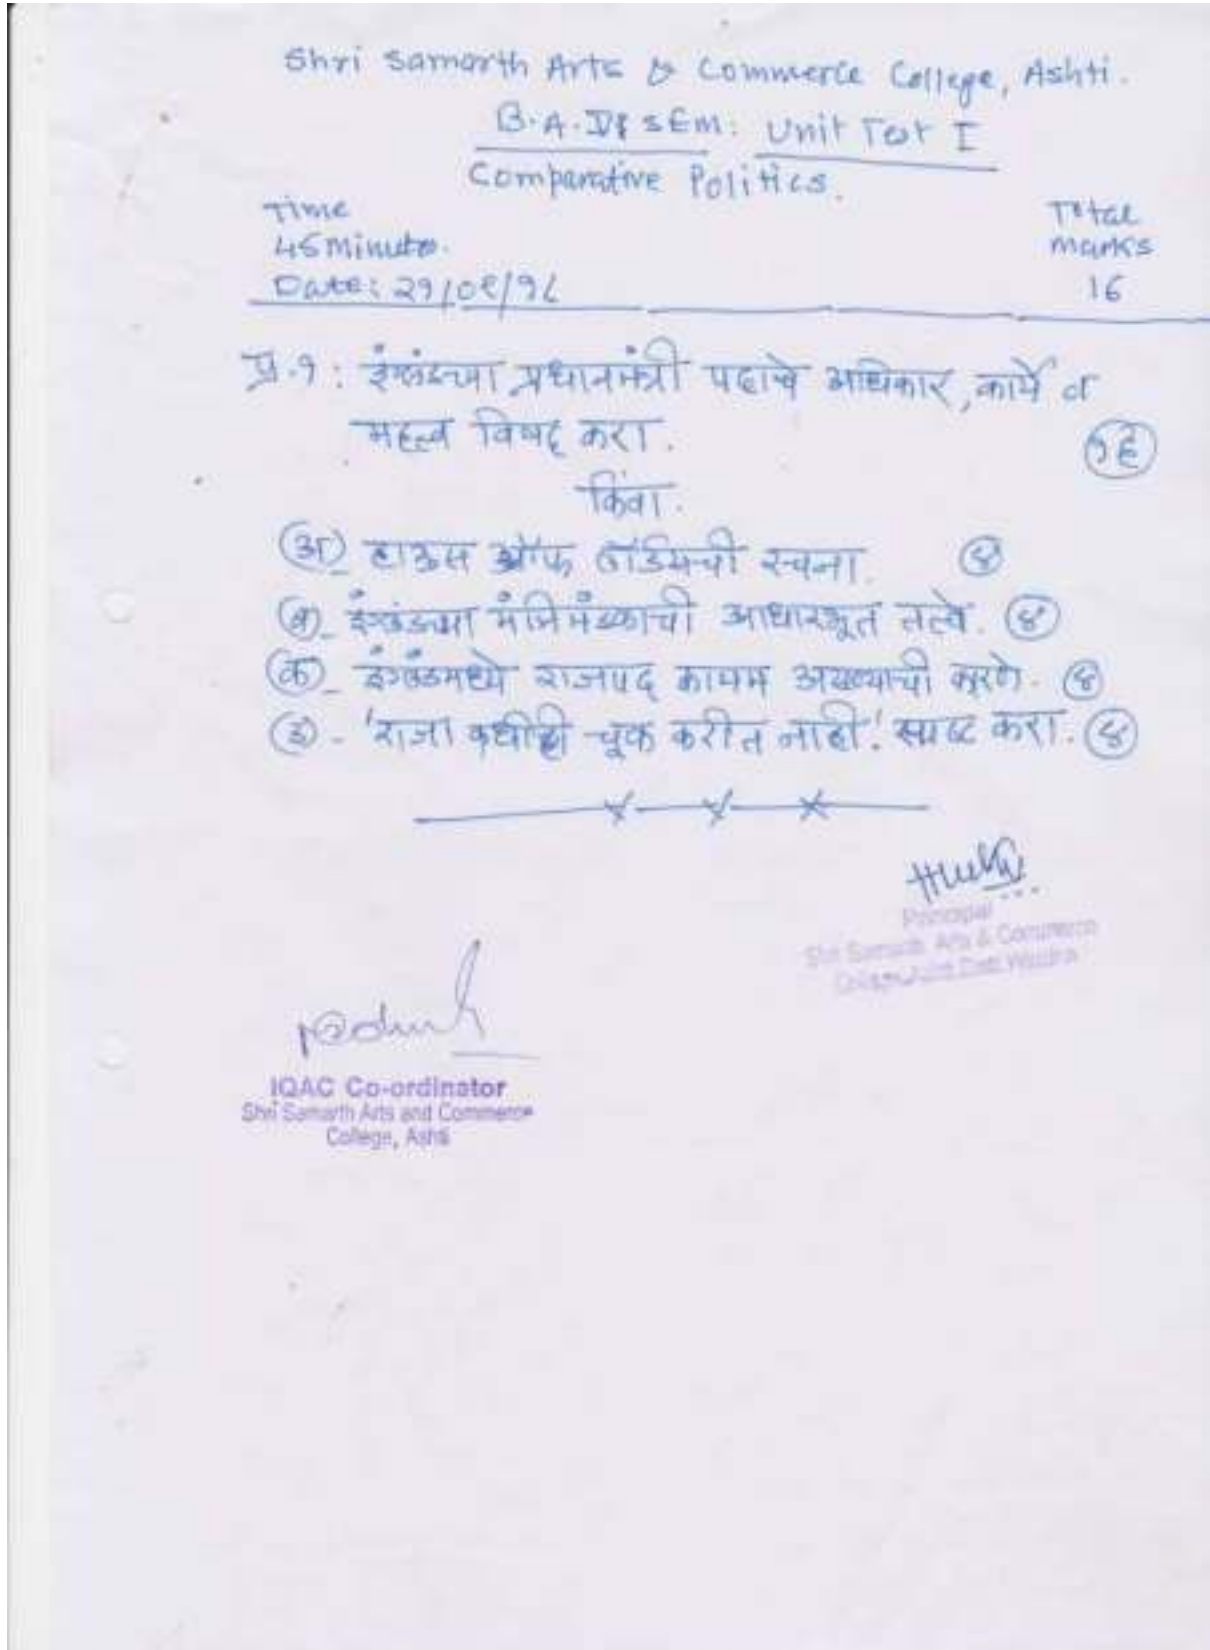 Shri Samarth Arts & Commerce College, Ashti.
B.A. SEM: Unit Test I
Comparative Politics.
Time
Total
45 minute.
marks
Date: २१/०९/१८
16
प्र.१: इंग्लंडच्या प्रधानमंत्री पदाचे अधिकार, कार्ये व
महत्त्व विषद करा.
१६
किंवा.
अ) हाऊस ऑफ लॉर्डसची रचना. ४
ब) इंग्लंडच्या मंत्रिमंडळाची आधारभूत तत्वे. ४
क) इंग्लंडमध्ये राजपद कायम असण्याची कारणे. ४
ड) - 'राजा कधीही चूक करीत नाही.' स्पष्ट करा. ४
Principal
Shri Samarth Arts & Commerce
College, Ashti Distt. Wardha
IQAC Co-ordinator
Shri Samarth Arts and Commerce
College, Ashti